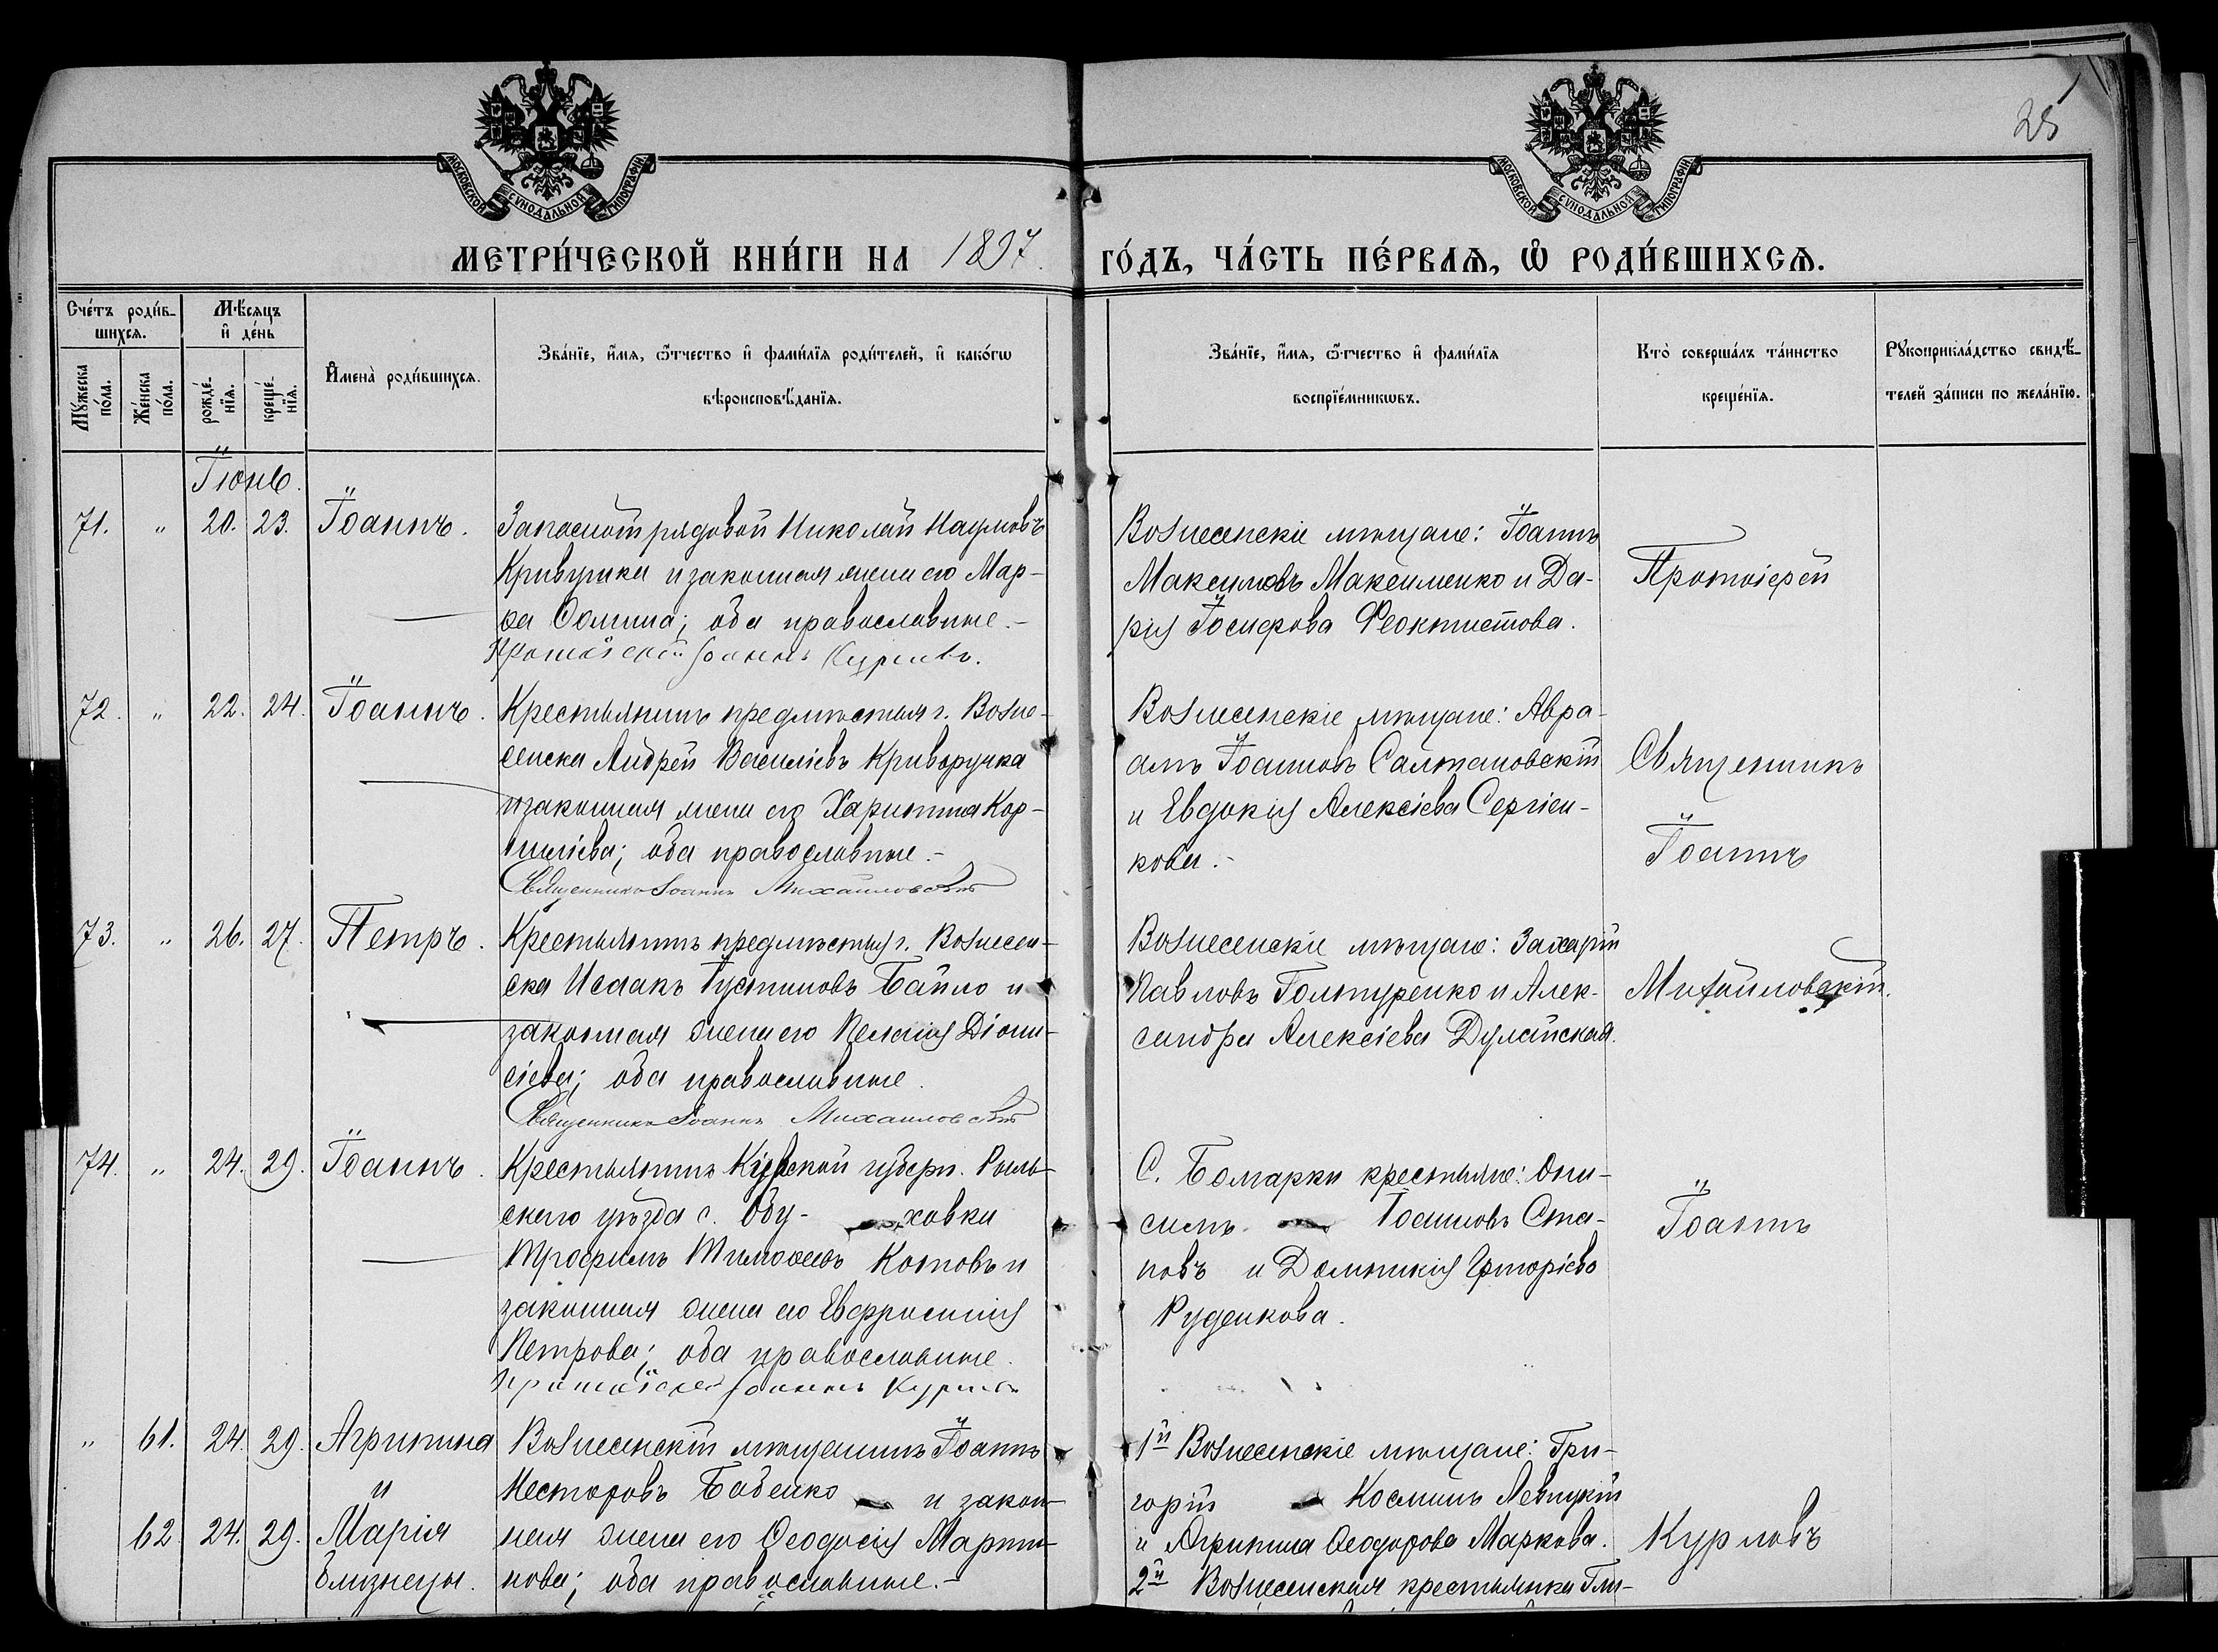 25
МОСКОВСКОЙ СУНОДАЛЬНОЙ ТИПОГРАФІИ
МОСКОВСКОЙ СУНОДАЛЬНОЙ ТИПОГРАФІИ
МЕТРИ́ЧЕСКОЙ КНИ́ГИ НА 1897 ГО́ДЪ, ЧА́СТЬ ПЕ́РВАѦ, Ѡ҆ РОДИ́ВШИХСѦ.
Сче́тъ роди́в-
шихсѧ.
Мꙋ́жеска по́ла.
Же́нска по́ла.
Мѣ́сѧцъ
и҆ де́нь
рожде́-нїѧ.
креще́-нїѧ.
И҆мена̀ роди́вшихсѧ.
Зва́нїе, и҆́мѧ, ѻ҆́тчество и҆ фами́лїѧ роди́телей, и҆ како́гѡ
вѣроисповѣ́данїѧ.
Зва́нїе, и҆́мѧ, ѻ҆́тчество и҆ фами́лїѧ
воспрїе́мникѡвъ.
Кто̀ соверша́лъ та́инство
креще́нїѧ.
Рꙋкоприкла́дство свидѣ́-
телей за́писи по жела́нїю.
Іюнь.
71. " 20. 23. Іоаннъ.
Запасной рядовой Николай Наумовъ
Кривушка и законная жена его Мар-
ѳа Ѳомина; оба православные.-
Протоіерей Іоаннъ Курловъ.
Вознесенскіе мѣщане: Іоаннъ
Максимовъ Максименко и Да-
рія Іосифова Феоктистова.
Протоіерей
72. " 22. 24. Іоаннъ.
Крестьянинъ предмѣстья г. Возне-
сенска Андрей Василіевъ Криворучка
и законная жена его Харитина Кор-
ниліева; оба православные.-
Священникъ Іоаннъ Михайловскій
Вознесенскіе мѣщане: Авра-
амъ Іоанновъ Салтановскій
и Евдокія Алексіева Сергіен-
кова.-
Священникъ
Іоаннъ
73. " 26. 27. Петръ.
Крестьянинъ предмѣстья г. Вознесен-
ска Исаакъ Іустиновъ Байло и
законная жена его Пелагія Діони-
сіева; оба православные.
Священникъ Іоаннъ Михайловскій
Вознесенскіе мѣщане: Захарій
Павловъ Голтуренко и Алек-
сандра Алексіева Дулайская.
Михайловскій.
74. " 24. 29. Іоаннъ.
Крестьянинъ Курской губерн. Рыль-
скаго уѣзда с. Обу- ховки
Трофимъ Тимоѳеевъ Котовъ и
законная жена его Евфросинія
Петрова; оба православные.
Протоіерей Іоаннъ Курловъ
С. Болгарки крестьяне: Они-
симъ Іоанновъ Ста-
новъ и Домникія Григоріева
Руденкова.
Іоаннъ
" 61. 24. 29. Агрипина
и
62 24. 29. Марія
близнецы.
Вознесенскій мѣщанинъ Іоаннъ
Несторовъ Бабенко и закон-
ная жена его Ѳеодосія Марти-
нова; оба православные.-
1й Вознесенскіе мѣщане: Гри-
горій Косминъ Левицкій
и Агрипина Ѳеодорова Маркова.
2й Вознесенская крестьянка
Курловъ